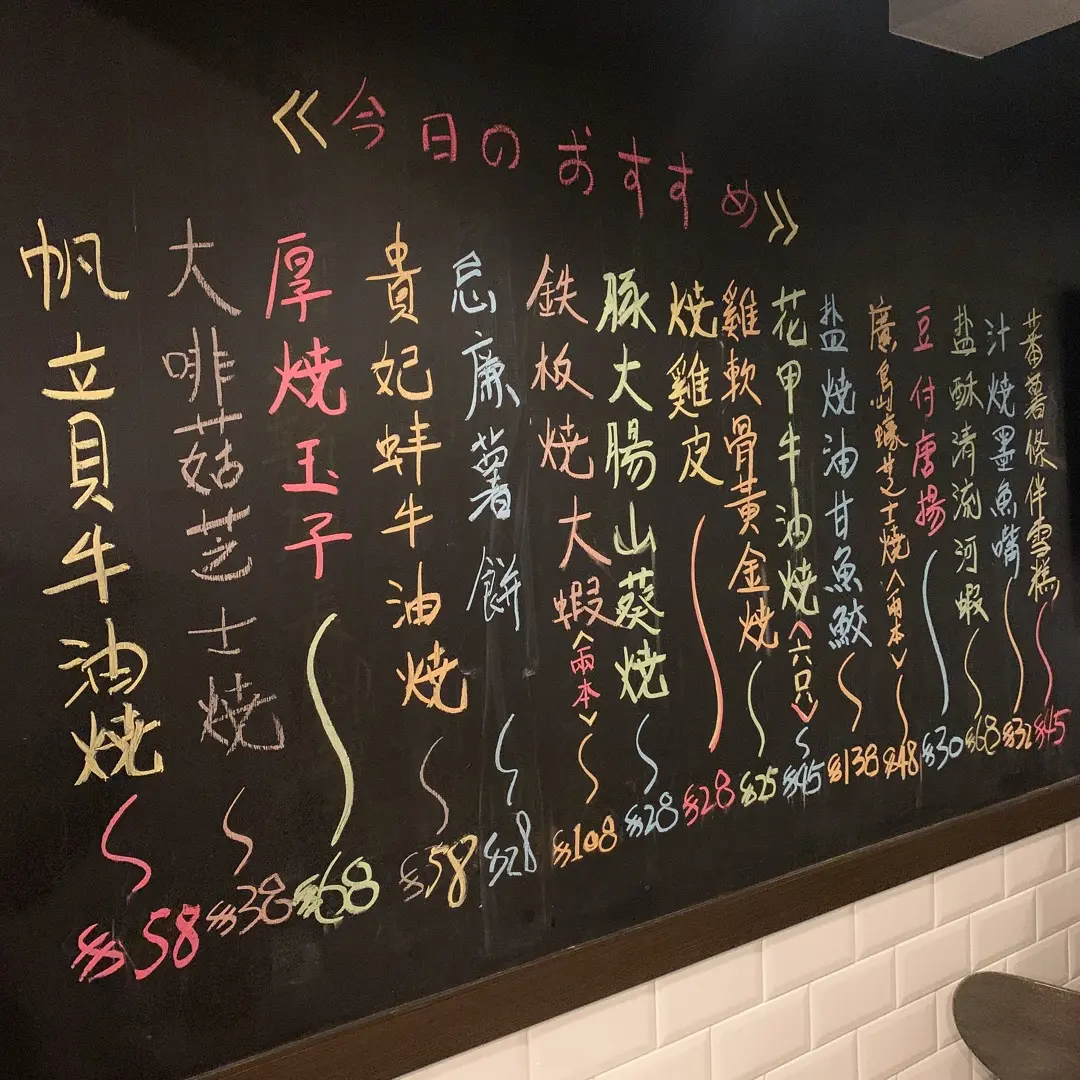 《今日のおすすめ》
蕃薯條伴雪糕 $45
汁燒墨魚嘴 $32
盐酥清流河蝦 $68
豆付唐揚 $30
廣島蠔芝士燒<兩本> $48
盐燒油甘魚鮫 $138
花甲牛油燒<六只> $45
雞軟骨黄金燒 $25
燒雞皮 $28
豚大腸山葵燒 $28
鉄板燒大蝦<兩本> $108
忌廉薯餅 $28
貴妃蚌牛油燒 $58
厚燒玉子 $68
大啡菇芝士燒 $38
帆立貝牛油燒 $58